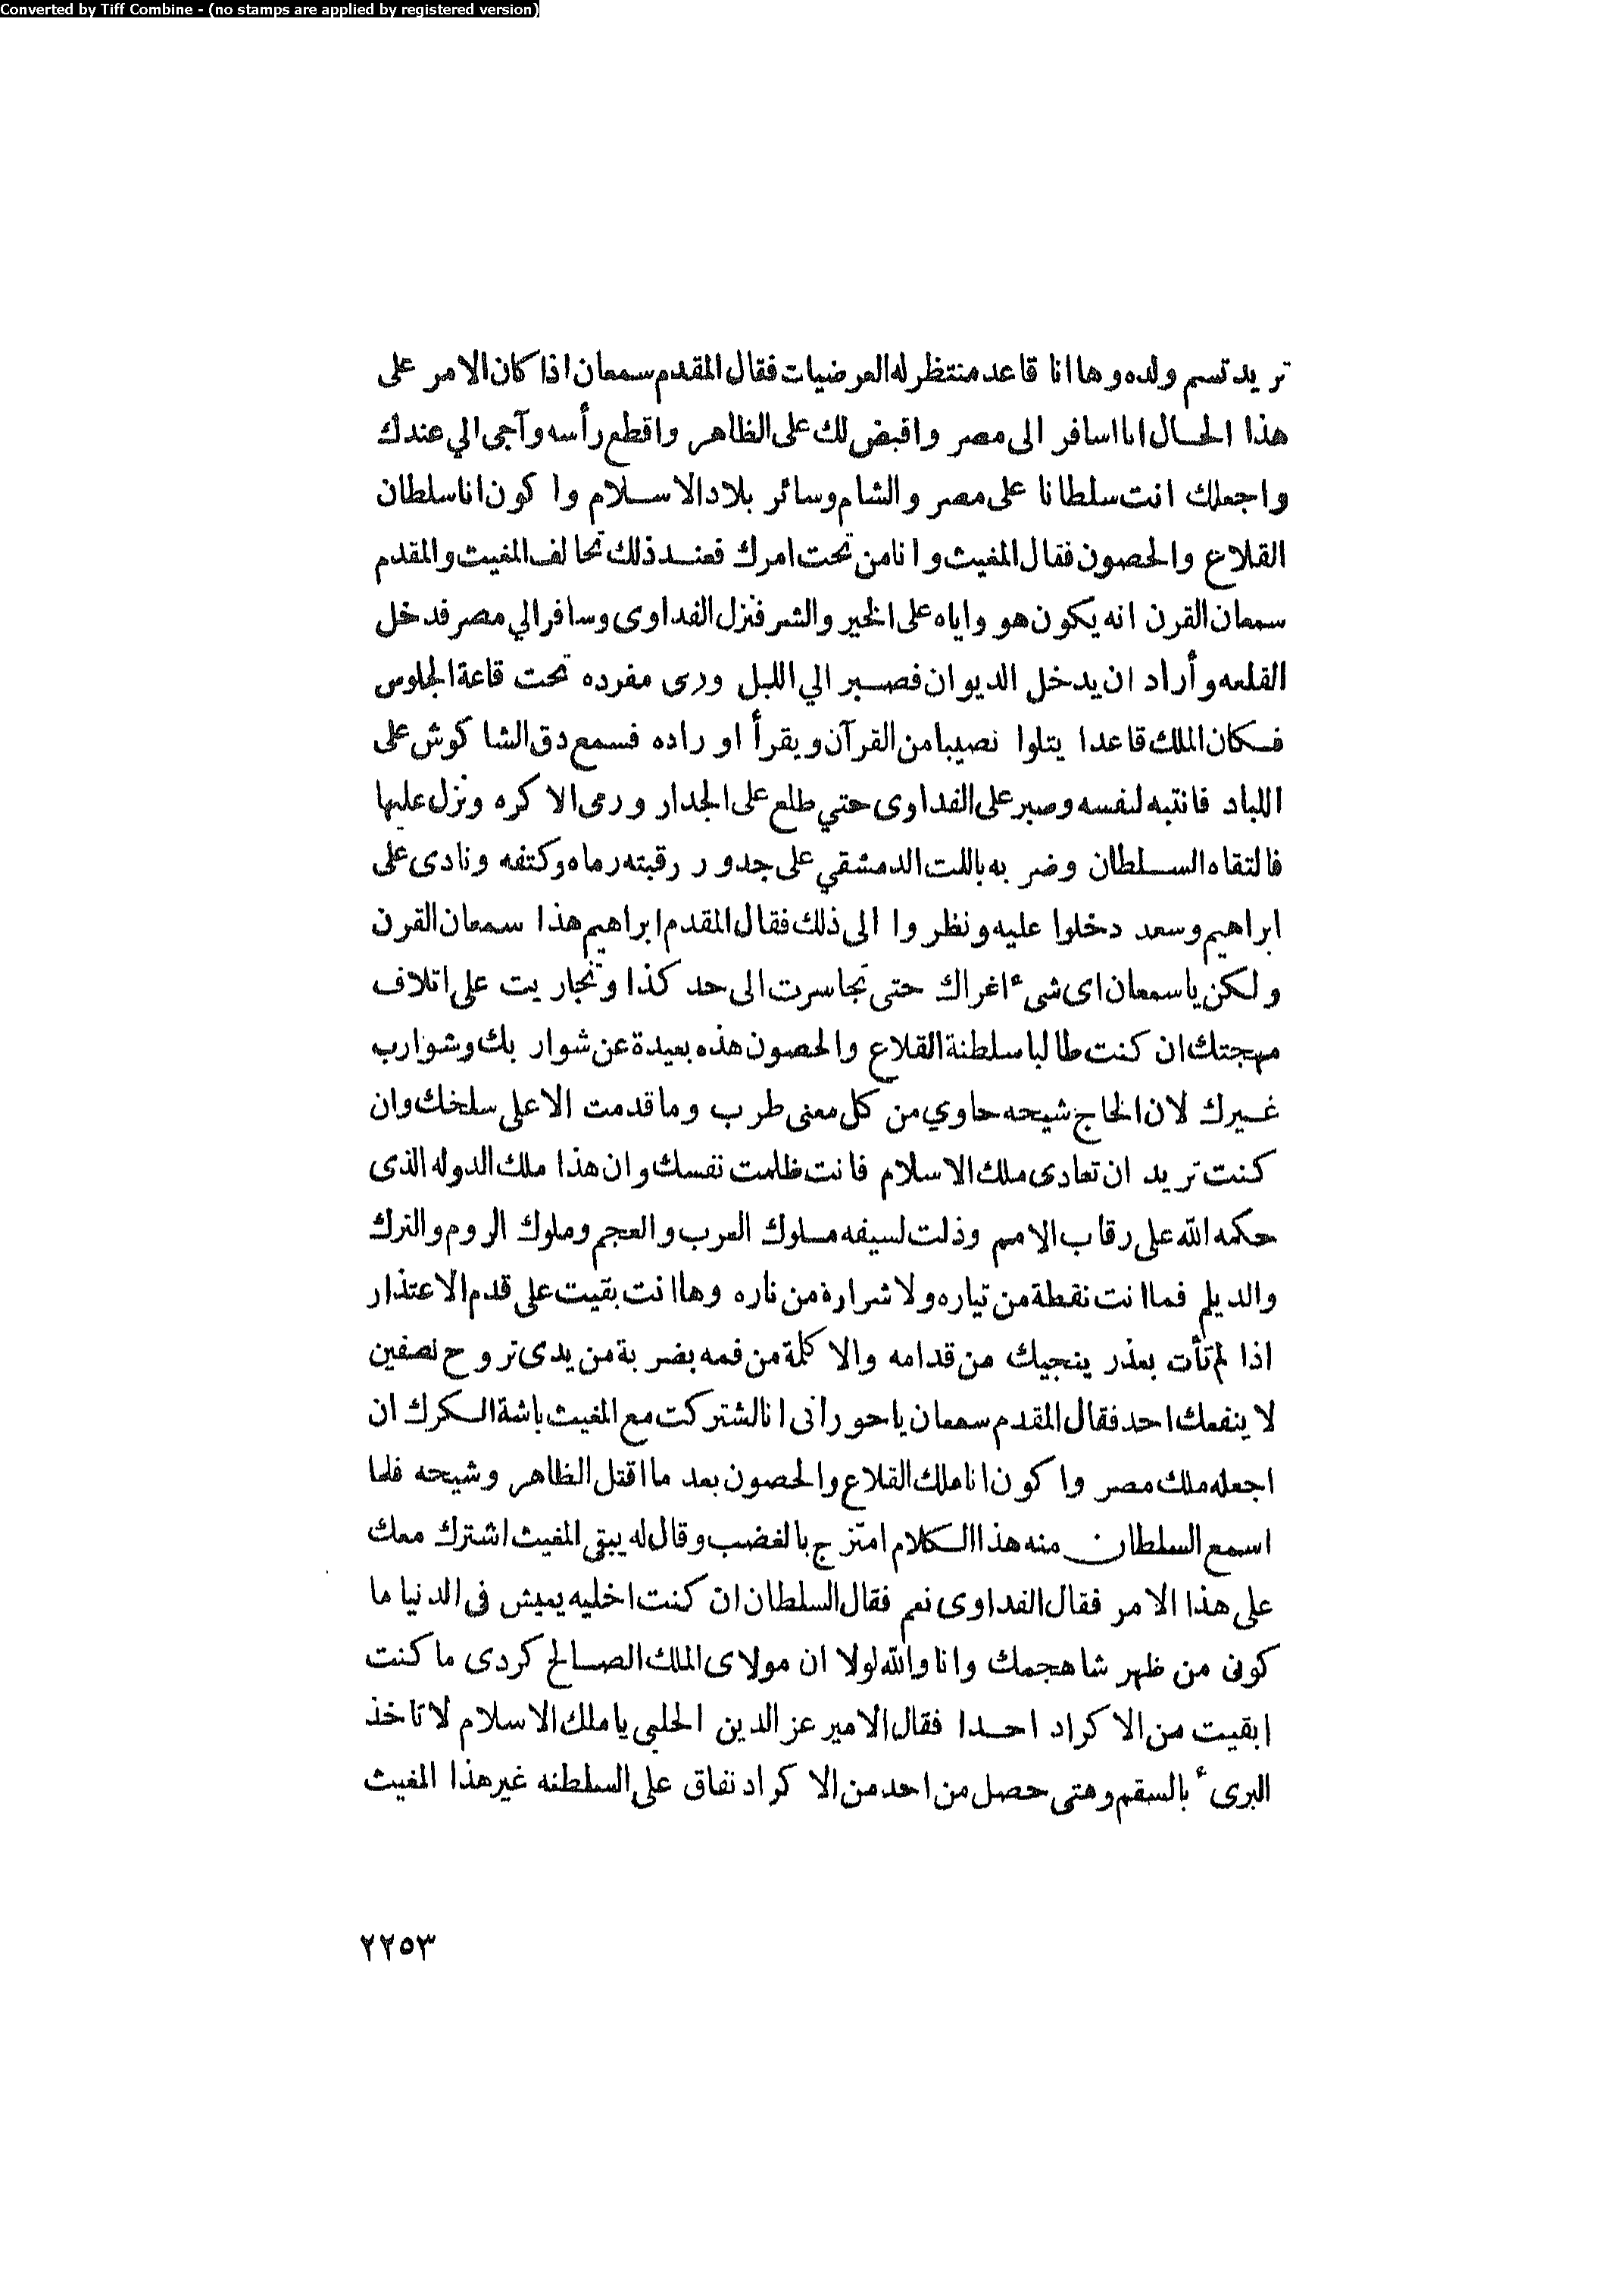 Converted by Tiff Combine - (no stamps are applied by registered version)
تريد تسم ولده وها انا قاعد منتظر له العرضيات فقال المقدم سمعان اذا كان الامر على
هذا الحال انا اسافر الى مصر واقبض لك على الظاهر واقطع رأسه وآجى الي عندك
واجعلك انت سلطانا على مصر والشام وسائر بلاد الاسلام واكون انا سلطان
القلاع والحصون فقال المغيث وانا من تحت امرك فعند ذلك تحالف المغيث والمقدم
سمعان القرن انه يكون هو واياه على الخير والشر فنزل الفداوى وسافر الي مصر فدخل
القلعه وأراد ان يدخل الديوان فصبر الي الليل ورى مفرده تحت قاعة الجلوس
فكان الملك قاعدا يتلوا نصيبا من القرآن ويقرأ اوراده فسمع دق الشاكوش على
اللباد فانتبه لنفسه وصبر على الفداوى حتي طلع على الجدار ورمى الاكره ونزل عليها
فالتقاه السلطان وضربه باللت الدمشقي على جدور رقبته رماه وكتفه ونادى على
ابراهيم وسعد دخلوا عليه ونظروا الى ذلك فقال المقدم ابراهيم هذا سمعان القرن
ولكن ياسمعان اى شىء اغراك حتى تجاسرت الى حد كذا وتجاريت على اتلاف
مهجتك ان كنت طالبا سلطنة القلاع والحصون هذه بعيدة عن شواربك وشوارب
غيرك لان الحاج شيحه حاوي من كل معنى طرب وما قدمت الا على سلخك وان
كنت تريد ان تعادى ملك الاسلام فانت ظلمت نفسك وان هذا ملك الدوله الذى
حكمه الله على رقاب الامم وذلت لسيفه ملوك العرب والعجم وملوك الروم والترك
والديلم فما انت نقطة من تياره ولا شرارة من ناره وها انت بقيت على قدم الاعتذار
اذا لم تأت بعذر ينجيك من قدامه والا كلمة من فمه بضربة من يدى تروح نصفين
لا ينفعك احد فقال المقدم سمعان ياحورانى انا الشتركت مع المغيث باشة الكرك ان
اجعله ملك مصر واكون انا ملك القلاع والحصون بعد ما اقتل الظاهر وشيحه فلما
اسمع السلطان منه هذا الكلام امتزج بالغضب وقال له يبقي المغيث اشترك معك
على هذا الامر فقال الفداوى نعم فقال السلطان ان كنت اخليه يعيش فى الدنيا ما
كونى من ظهر شاهجمك وانا والله لولا ان مولاى الملك الصالح كردى ما كنت
ابقيت من الاكراد احدا فقال الامير عز الدين الحلبى ياملك الاسلام لا تاخذ
البرىء بالسقم ومتى حصل من احد من الاكراد نفاق على السلطنه غير هذا المغيث
٢٢٥٣